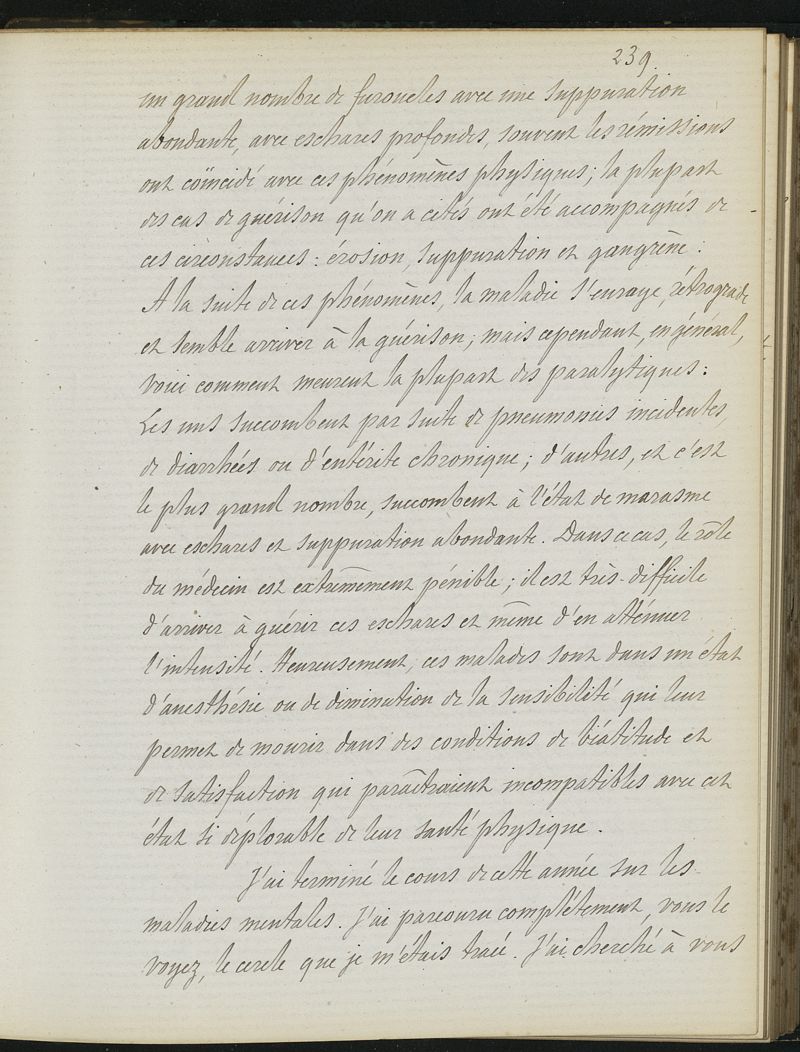 239.
un grand nombre de furoncles avec une suppuration
abondante, avec eschares profondes, souvent les rémissions
ont coïncidé avec ces phénomènes physiques; la plupart
des cas de guérison qu'on a cités ont été accompagnés de
ces circonstances : érosion, suppuration et gangrène :
A la suite de ces phénomènes, la maladie s'enraye, rétrograde
et semble arriver à la guérison; mais cependant, en général,
voici comment meurent la plupart des paralytiques :
Les uns succombent par suite de pneumonies incidentes,
de diarrhées ou d'entérite chronique; d'autres, et c'est
le plus grand nombre, succombent à l'état de marasme
avec eschares et suppuration abondante. Dans ce cas, le rôle
du médecin est extrêmement pénible; il est très-difficile
d'arriver à guérir ces eschares et même d'en atténuer
l'intensité. Heureusement, ces malades sont dans un état
d'anesthésie ou de diminution de la sensibilité qui leur
permet de mourir dans des conditions de béatitude et
de satisfaction qui paraîtraient incompatibles avec cet
état si déplorable de leur santé physique.
J'ai terminé le cours de cette année sur les
maladies mentales. J'ai parcouru complétement, vous le
voyez, le cercle que je m'étais tracé. J'ai cherché à vous